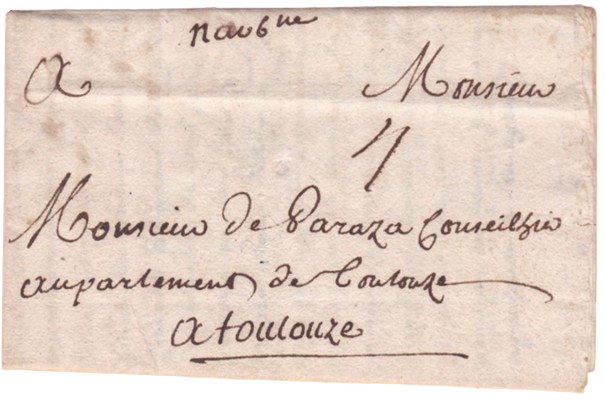 narbne
A Monsieur
4
Monsieur de Paraza Conseilhier
au parlement de Toulouze
A toulouze